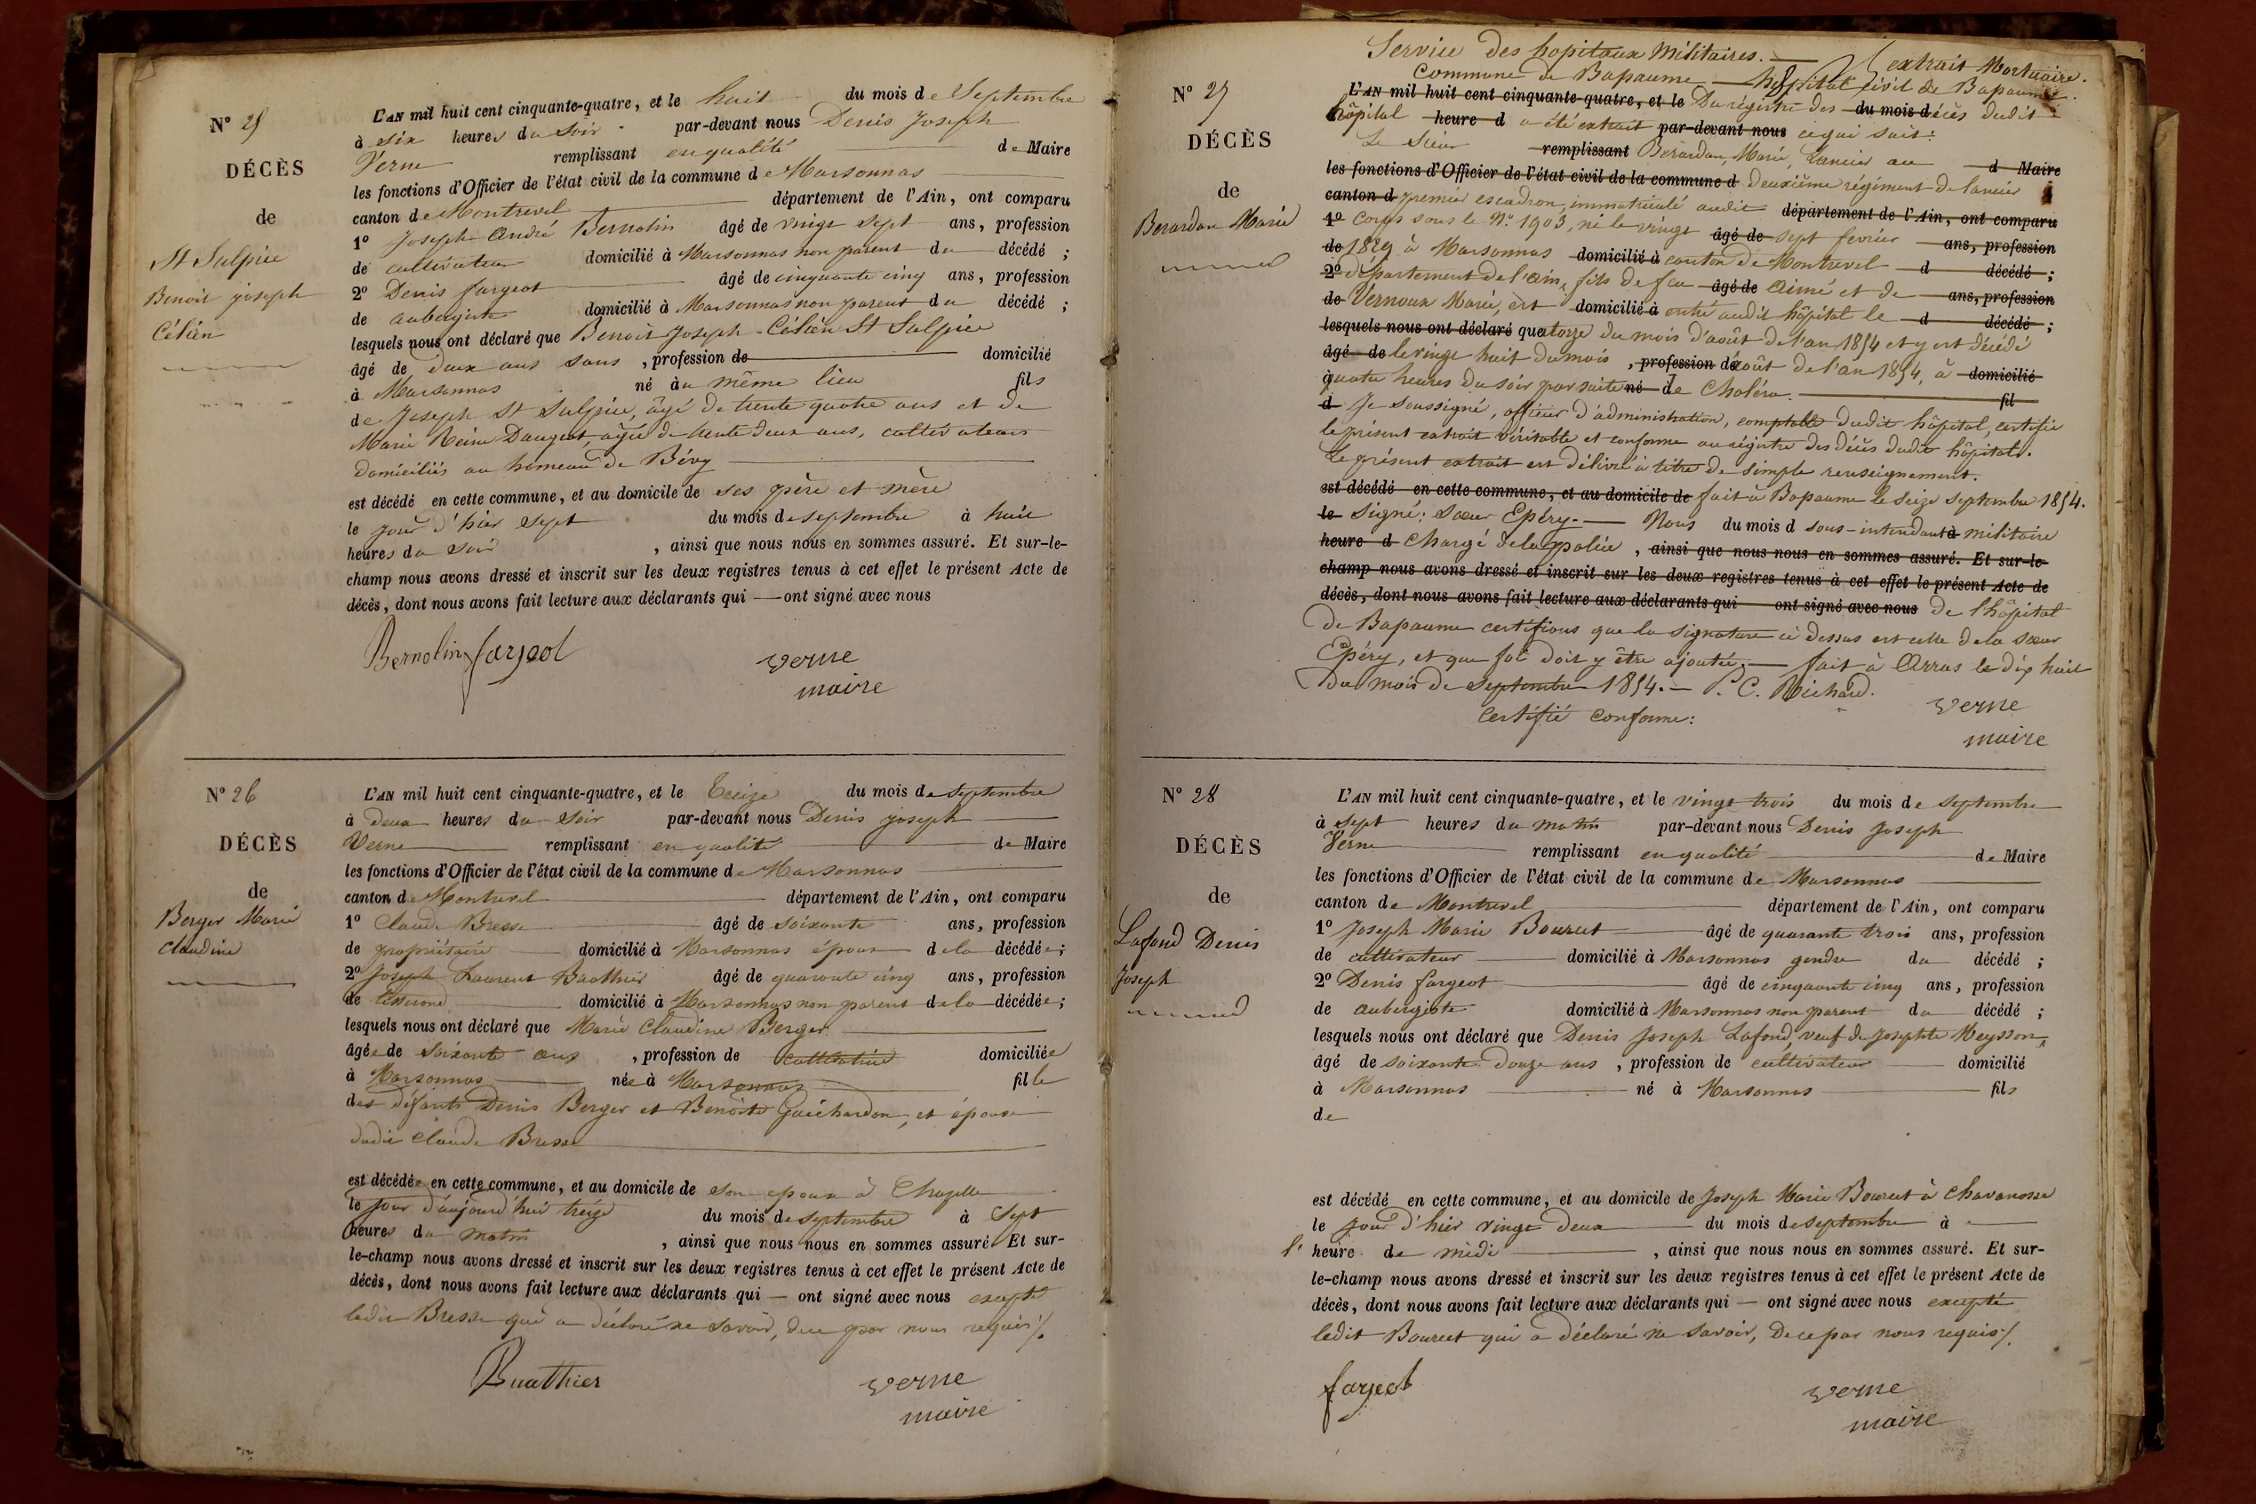 N° 25
DÉCÈS
de
St Sulpice
Benoit joseph
Célien
L'AN mil huit cent cinquante-quatre, et le huit du mois de Septembre
à six heures du soir par-devant nous Denis Joseph
Verne remplissant en qualité de Maire
les fonctions d'Officier de l'état civil de la commune de Marsonnas
canton de Montrevel département de l'Ain, ont comparu
1° Joseph André Bernolin âgé de vingt sept ans, profession
de cultivateur domicilié à Marsonnas non parent du décédé ;
2° Denis fargeot âgé de cinquante cinq ans, profession
de aubergiste domicilié à Marsonnas non parent du décédé ;
lesquels nous ont déclaré que Benoit Joseph Célien St Sulpice
âgé de deux ans sans , profession de domicilié
à Marsonnas né au même lieu fils
de Joseph St Sulpice, âgé de trente quatre ans et de
Marie Reine Daugeat, agée de trente deux ans, cultivateurs
domiciliés au hameau de Bévy
est décédé en cette commune, et au domicile de ses père et mère
le jour d'hier sept du mois de septembre à huit
heures du soir , ainsi que nous nous en sommes assuré. Et sur-le-
champ nous avons dressé et inscrit sur les deux registres tenus à cet effet le présent Acte de
décès, dont nous avons fait lecture aux déclarants qui — ont signé avec nous
Bernolin fargeot verne
maire
N° 26
DÉCÈS
de
Berger Marie
Claudine
L'AN mil huit cent cinquante-quatre, et le treize du mois de septembre
à deux heures du soir par-devant nous Denis joseph
Verne remplissant en qualité de Maire
les fonctions d'Officier de l'état civil de la commune de Marsonnas
canton de Montrevel département de l'Ain, ont comparu
1° Claude Bresse âgé de soixante ans, profession
de propriétaire domicilié à Marsonnas époux de la décédée ;
2° Joseph Laurent Buathier âgé de quarante cinq ans, profession
de tisserand domicilié à Marsonnas non parent de la décédée ;
lesquels nous ont déclaré que Marie Claudine Berger
âgée de soixante ans , profession de cultivatrice domiciliée
à Marsonnas née à Marsonnas fille
des défunts Denis Berger et Benoite Guichardon, et épouse
dudit Claude Bresse
est décédée en cette commune, et au domicile de son epoux à Chapelle
le jour d'aujourd'hui treize du mois de septembre à sept
heures du matin , ainsi que nous nous en sommes assuré. Et sur-
le-champ nous avons dressé et inscrit sur les deux registres tenus à cet effet le présent Acte de
décès, dont nous avons fait lecture aux déclarants qui — ont signé avec nous excepté
ledit Bresse qui a déclaré ne savoir, de ce par nous requis
Buathier verne
maire
N° 27
DÉCÈS
de
Berardan Marie
Service des hopitaux Militaires. — extrait Mortuaire.
Commune de Bapaume — hopital civil de Bapaume.
L'AN mil huit cent cinquante-quatre, et le Du régistre des du mois d décès dudit
hôpital heure d a été extrait par-devant nous ce qui suit :
Le Sieur remplissant Berardan, Marie, Lancier au d Maire
les fonctions d'Officier de l'état civil de la commune d deuxième régiment de lancier
canton d premier escadron, immatriculé audit département de l'Ain, ont comparu
1° corps sous le N° 1903, né le vingt âgé de sept fevrier ans, profession
de 1829 à Marsonnas domicilié à canton de Montrevel d décédé ;
2° département de l'ain, fils de feu âgé de Aimé et de ans, profession
de Vernoux Marie, est domicilié à entré audit hôpital le d décédé ;
lesquels nous ont déclaré quatorze du mois d'août de l'an 1854 et y est décédé
âgé de le vingt huit du mois , profession d'août de l'an 1854, à domicilié
quatre heures du soir par suite né de Choléra. fil
d Je soussigné, officier d'administration, comptable dudit hôpital, certifie
le présent extrait véritable et conforme au régistre des décès dudit hôpital.
Le présent extrait est délivré à titre de simple renseignement.
est décédé en cette commune, et au domicile de fait à Bapaume le seize septembre 1854.
le Signé : Sœur Epéry. — Nous du mois d sous-intendant à militaire
heure d Chargé de la police , ainsi que nous nous en sommes assuré. Et sur-le-
champ nous avons dressé et inscrit sur les deux registres tenus à cet effet le présent Acte de
décès, dont nous avons fait lecture aux déclarants qui ont signé avec nous de l'hôpital
de Bapaume certifions que la signature ci dessus est celle de la sœur
Epéry, et que foi doit y être ajoutée. — fait à Arras le dix huit
du mois de septembre 1854. — P. C. Richard.
Certifié conforme : verne
maire
N° 28
DÉCÈS
de
Lafond Denis
Joseph
L'AN mil huit cent cinquante-quatre, et le vingt trois du mois de septembre
à sept heures du matin par-devant nous Denis Joseph
Verne remplissant en qualité de Maire
les fonctions d'Officier de l'état civil de la commune de Marsonnas
canton de Montrevel département de l'Ain, ont comparu
1° Joseph Marie Bourcet âgé de quarante trois ans, profession
de cultivateur domicilié à Marsonnas gendre du décédé ;
2° Denis fargeot âgé de cinquante cinq ans, profession
de aubergiste domicilié à Marsonnas non parent du décédé ;
lesquels nous ont déclaré que Denis Joseph Lafond, veuf de Josephte Meysson,
âgé de soixante douze ans , profession de cultivateur domicilié
à Marsonnas né à Marsonnas fils
de
est décédé en cette commune, et au domicile de Joseph Marie Bourcet à Chavanosse
le jour d'hier vingt deux du mois de septembre à
l' heure de midi , ainsi que nous nous en sommes assuré. Et sur-
le-champ nous avons dressé et inscrit sur les deux registres tenus à cet effet le présent Acte de
décès, dont nous avons fait lecture aux déclarants qui — ont signé avec nous excepté
ledit Bourcet qui a déclaré ne savoir, de ce par nous requis
fargeot verne
maire